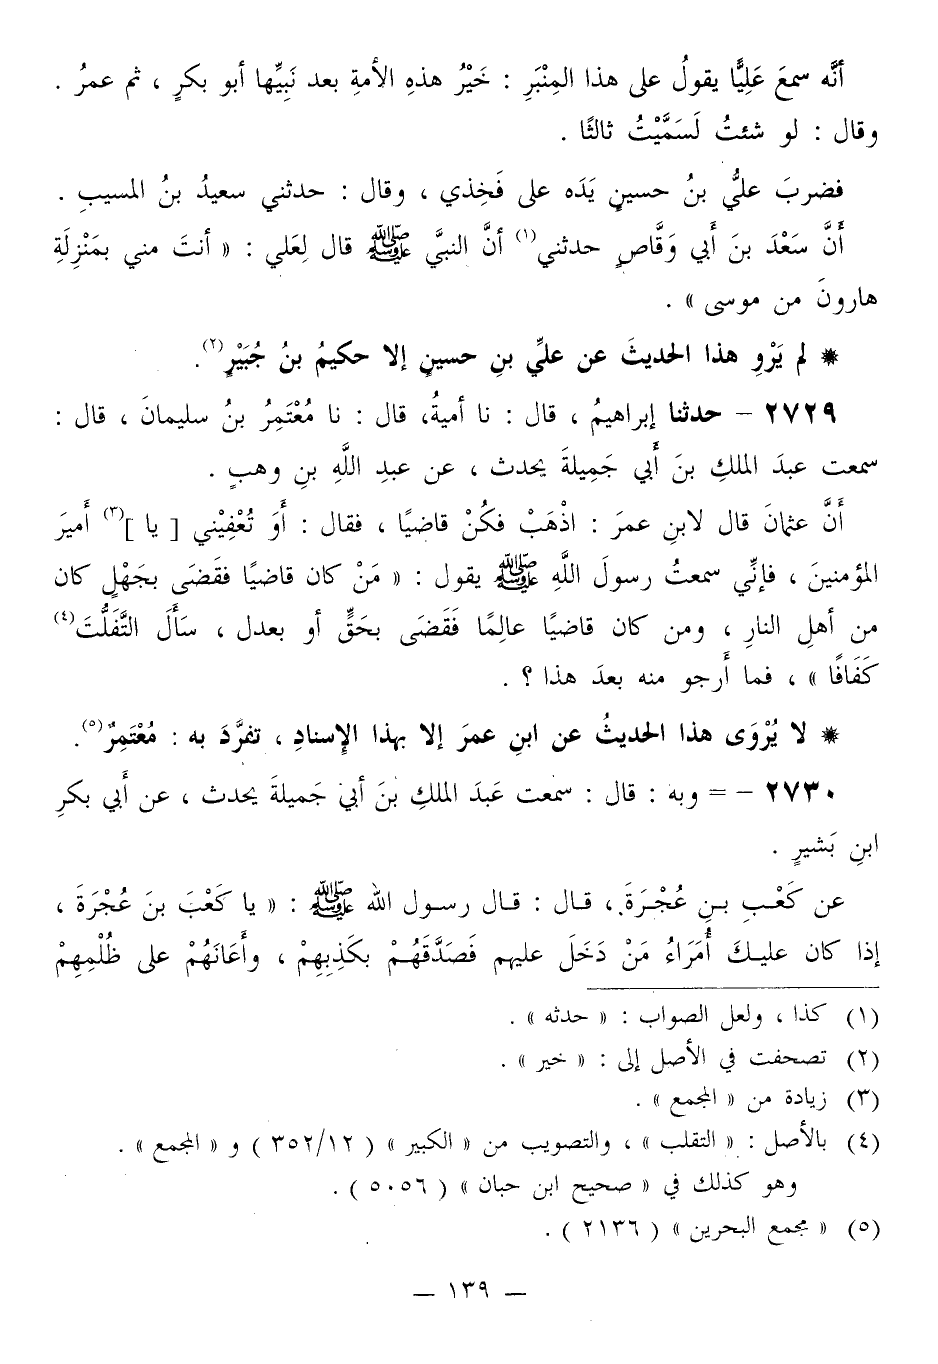 أنَّه سمعَ عَلِيًّا يقولُ على هذا المِنْبَرِ : خَيْرُ هذهِ الأمةِ بعد نَبِيِّها أبو بكرٍ ، ثم عمرُ .
وقال : لو شئتُ لَسَمَّيْتُ ثالثًا .
فضربَ عليُّ بنُ حسينٍ يَدَه على فَخِذي ، وقال : حدثني سعيدُ بنُ المسيبِ .
أَنَّ سَعْدَ بنَ أَبي وَقَّاصٍ حدثني(١) أنَّ النبيَّ ﷺ قال لِعَلي : « أنتَ مني بمَنْزِلَةِ
هارونَ من موسى » .
* لم يَرْوِ هذا الحديثَ عن عليِّ بنِ حسينٍ إلا حكيمُ بنُ جُبَيْرٍ(٢).
٢٧٢٩ – حدثنا إبراهيمُ ، قال : نا أميةُ، قال : نا مُعْتَمِرُ بنُ سليمانَ ، قال :
سمعت عبدَ الملكِ بنَ أَبي جَمِيلةَ يحدث ، عن عبدِ اللَّهِ بنِ وهبٍ .
أَنَّ عثمانَ قال لابنِ عمرَ : اذْهَبْ فكُنْ قاضيًا ، فقال : أَوَ تُعْفِيْني [ يا ](٣) أَميرَ
المؤمنينَ ، فإنِّي سمعتُ رسولَ اللَّهِ ﷺ يقول : « مَنْ كان قاضيًا فقَضَى بجَهْلٍ كان
من أهلِ النارِ ، ومن كان قاضيًا عالِمًا فَقَضَى بحَقٍّ أو بعدل ، سَأَلَ التَّفَلُّتَ(٤)
كَفَافًا » ، فما أَرجو منه بعدَ هذا ؟ .
* لا يُرْوَى هذا الحديثُ عن ابنِ عمرَ إلا بهذا الإسنادِ ، تفرَّدَ به : مُعْتَمِرٌ(٥).
٢٧٣٠ – = وبه : قال : سمعت عَبدَ الملكِ بنَ أبي جَميلةَ يحدث ، عن أَبي بكرِ
ابنِ بَشيرٍ .
عن كَعْبِ بنِ عُجْرَةَ ، قال : قال رسول الله ﷺ : « يا كَعْبَ بنَ عُجْرَةَ ،
إذا كان عليكَ أُمَرَاءُ مَنْ دَخَلَ عليهم فَصَدَّقَهُمْ بكَذِبِهِمْ ، وأَعَانَهُمْ على ظُلْمِهِمْ
(١) كذا ، ولعل الصواب : « حدثه » .
(٢) تصحفت في الأصل إلى : « خير » .
(٣) زيادة من « المجمع » .
(٤) بالأصل : « التقلب » ، والتصويب من « الكبير » ( ٣٥٢/١٢ ) و « المجمع » .
وهو كذلك في « صحيح ابن حبان » ( ٥٠٥٦ ) .
(٥) « مجمع البحرين » ( ٢١٣٦ ) .
– ١٣٩ –